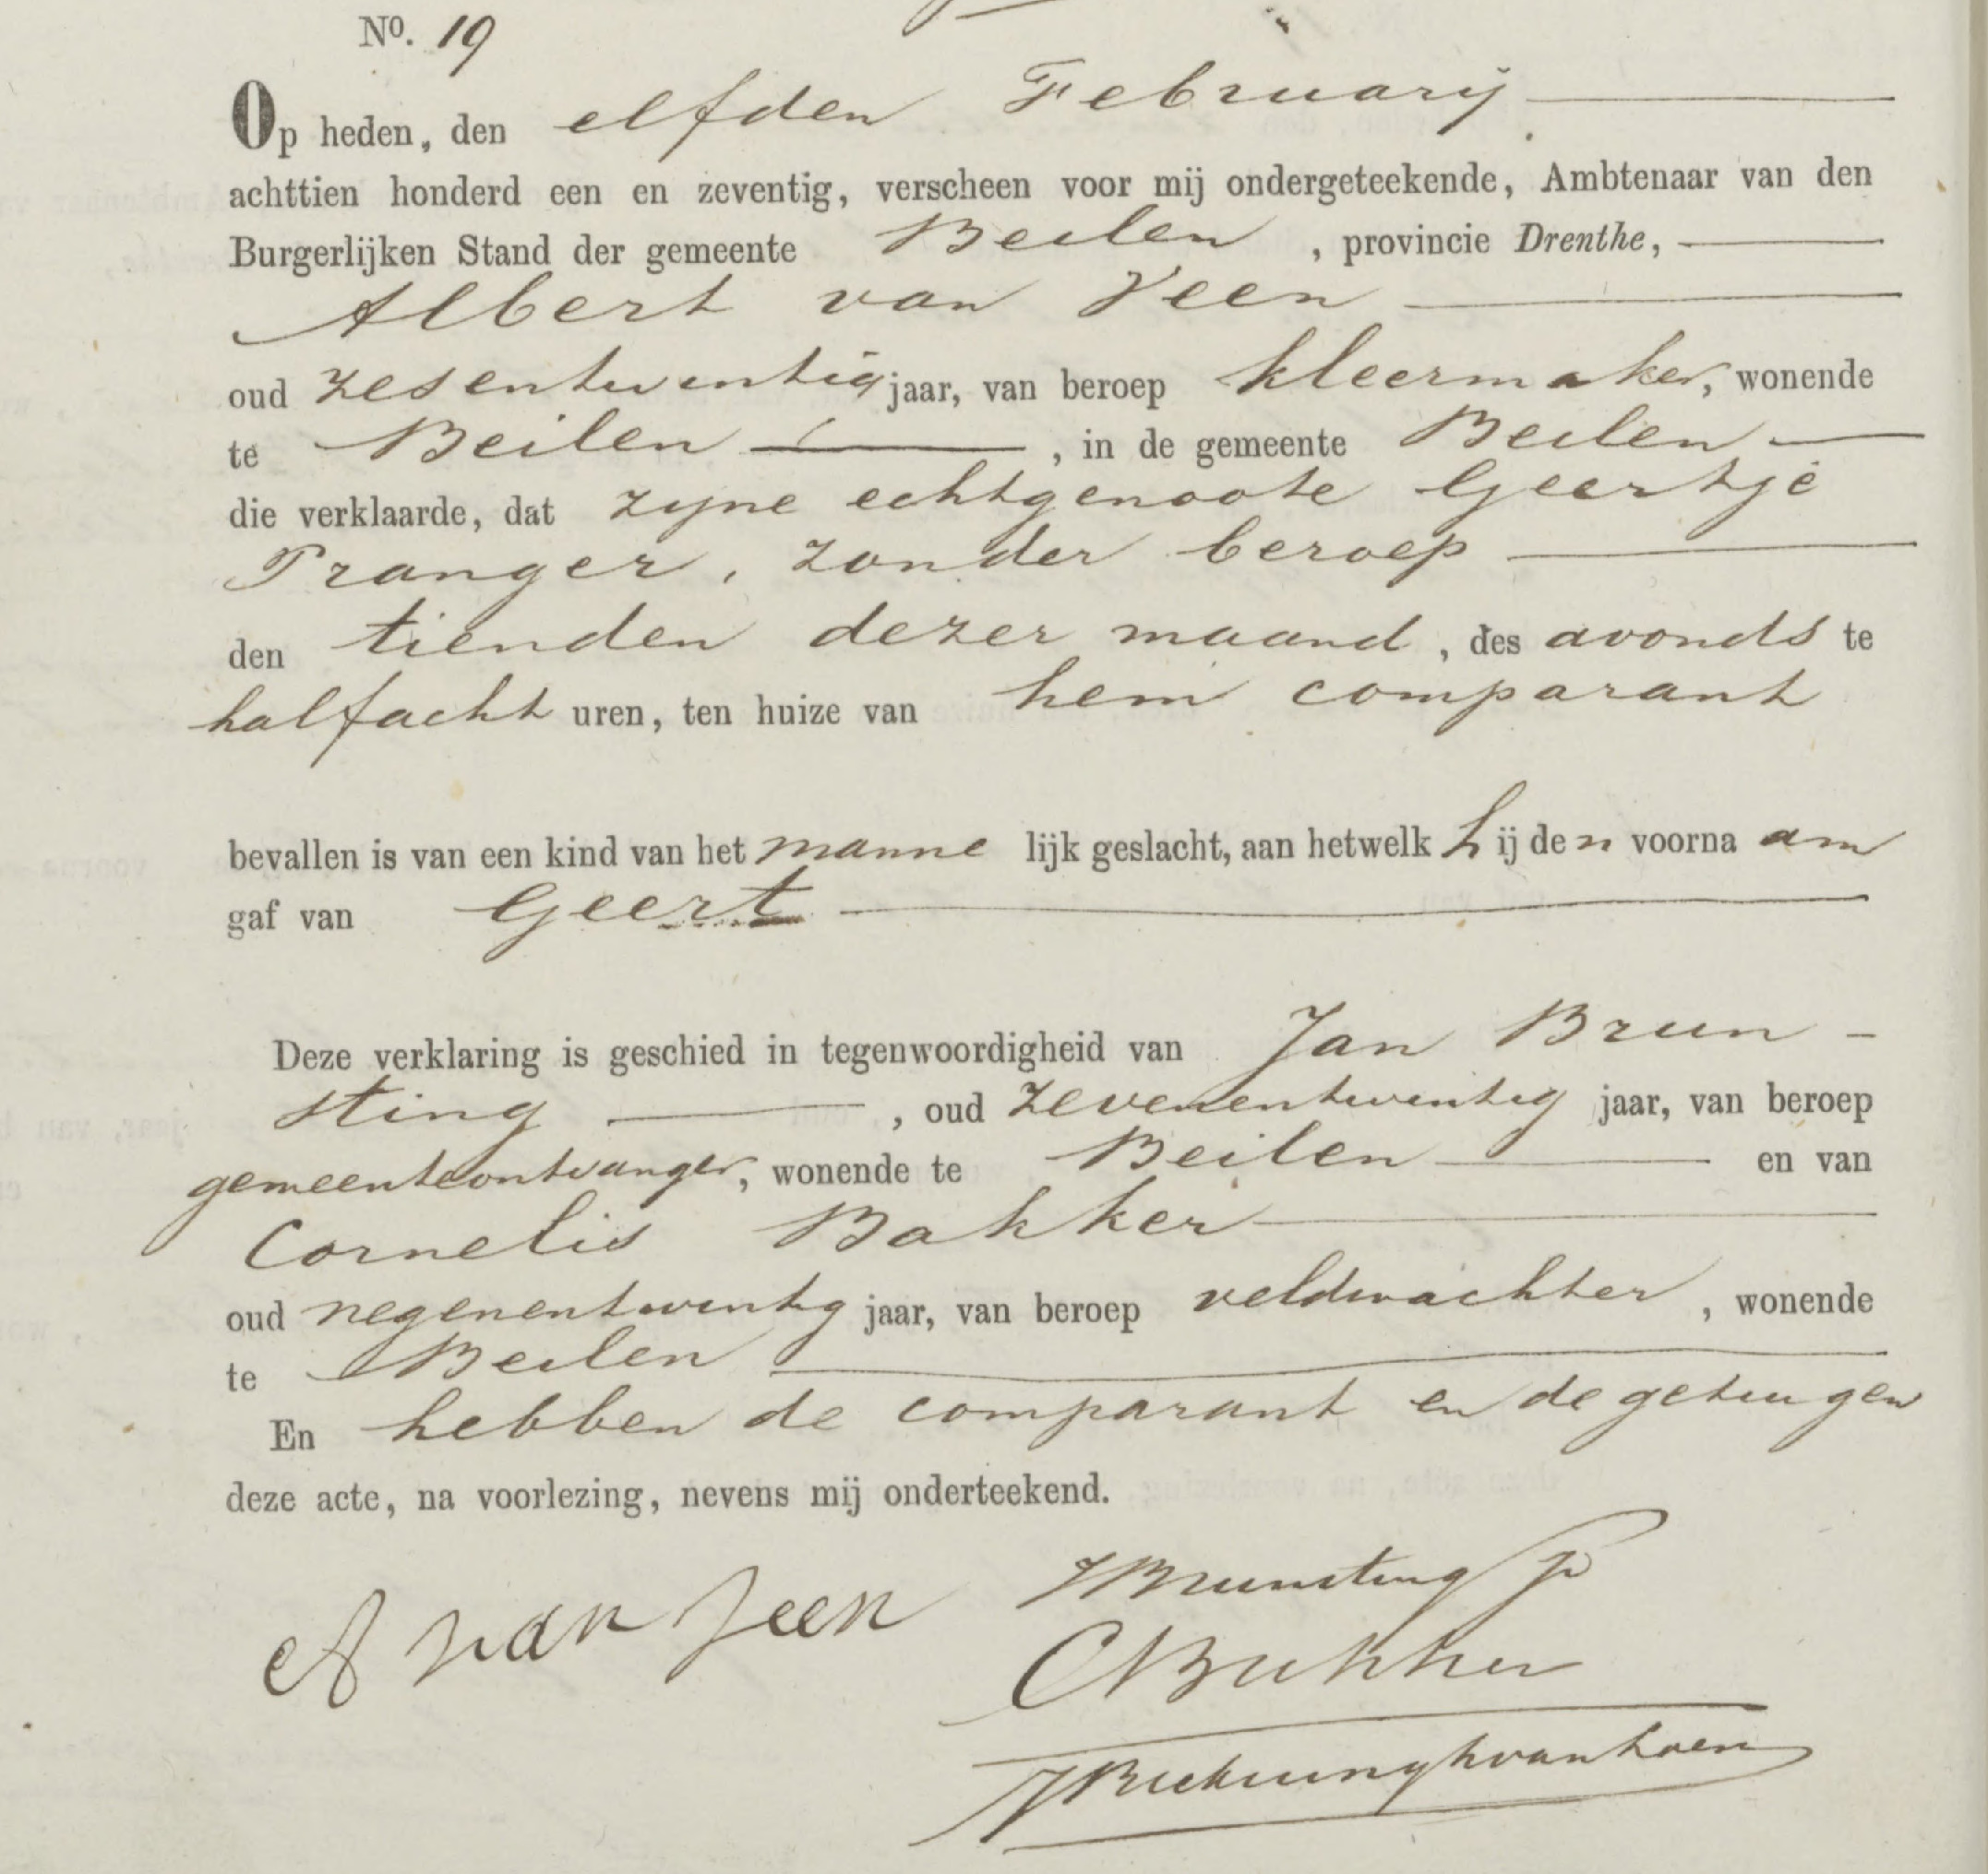 Nº. 19
Op heden, den elfden February
achttien honderd een en zeventig, verscheen voor mij ondergeteekende, Ambtenaar van den
Burgerlijken Stand der gemeente Beilen, provincie Drenthe,
Albert van Veen
oud zesentwintig jaar, van beroep kleermaker, wonende
te Beilen, in de gemeente Beilen
die verklaarde, dat zyne echtgenoote Geertje
Pranger, zonder beroep
den tienden dezer maand, des avonds te
halfacht uren, ten huize van hem comparant
bevallen is van een kind van het mannelijk geslacht, aan hetwelk hij den voornaam
gaf van Geert
Deze verklaring is geschied in tegenwoordigheid van Jan Brun-
sting, oud zevenentwintig jaar, van beroep
gemeenteontvanger, wonende te Beilen en van
Cornelis Bakker
oud negenentwintig jaar, van beroep veldwachter, wonende
te Beilen
En hebben de comparant en de getuigen
deze acte, na voorlezing, nevens mij onderteekend.
JBrunsting Jr
A van Veen
CBakker